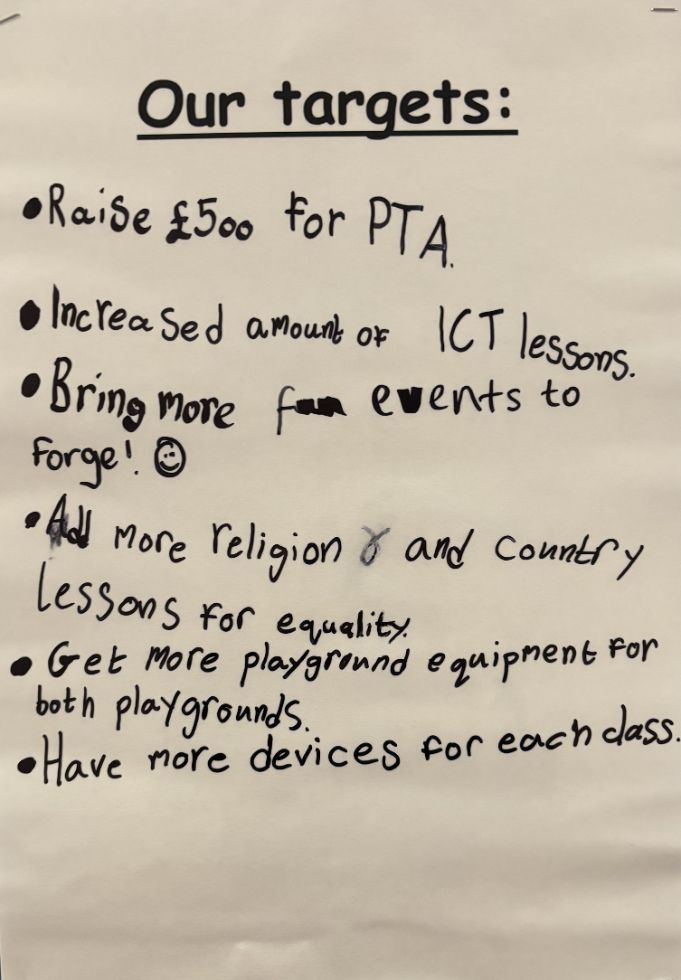 Our targets:
• Raise £500 for PTA.
• Increased amount of ICT lessons.
• Bring more fun events to
Forge! ☺
• Add more religion and country
lessons for equality.
• Get more playground equipment for
both playgrounds.
• Have more devices for each class.